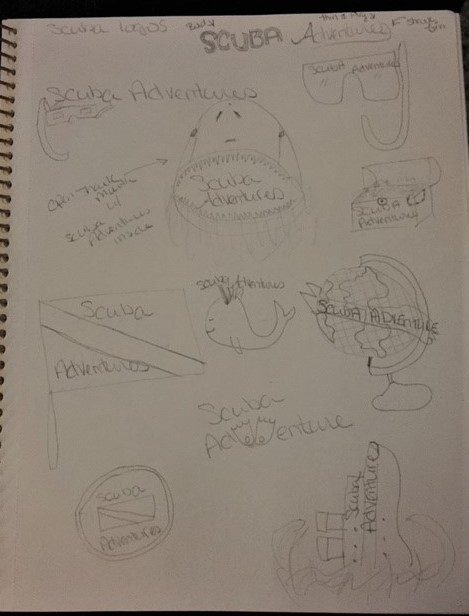 Scuba logos
Body
thin & wavy
SCUBA Adventures
shark
fin
SCUBA Adventures
Scuba Adventures
Open shark
mouth
w/
Scuba
Adventures
inside
Scuba
Adventures
SCUBA
Adventures
Scuba Adventures
Scuba
Adventures
SCUBA ADVENTURE
Scuba
Adventure
Scuba
Adventures
Scuba
Adventures